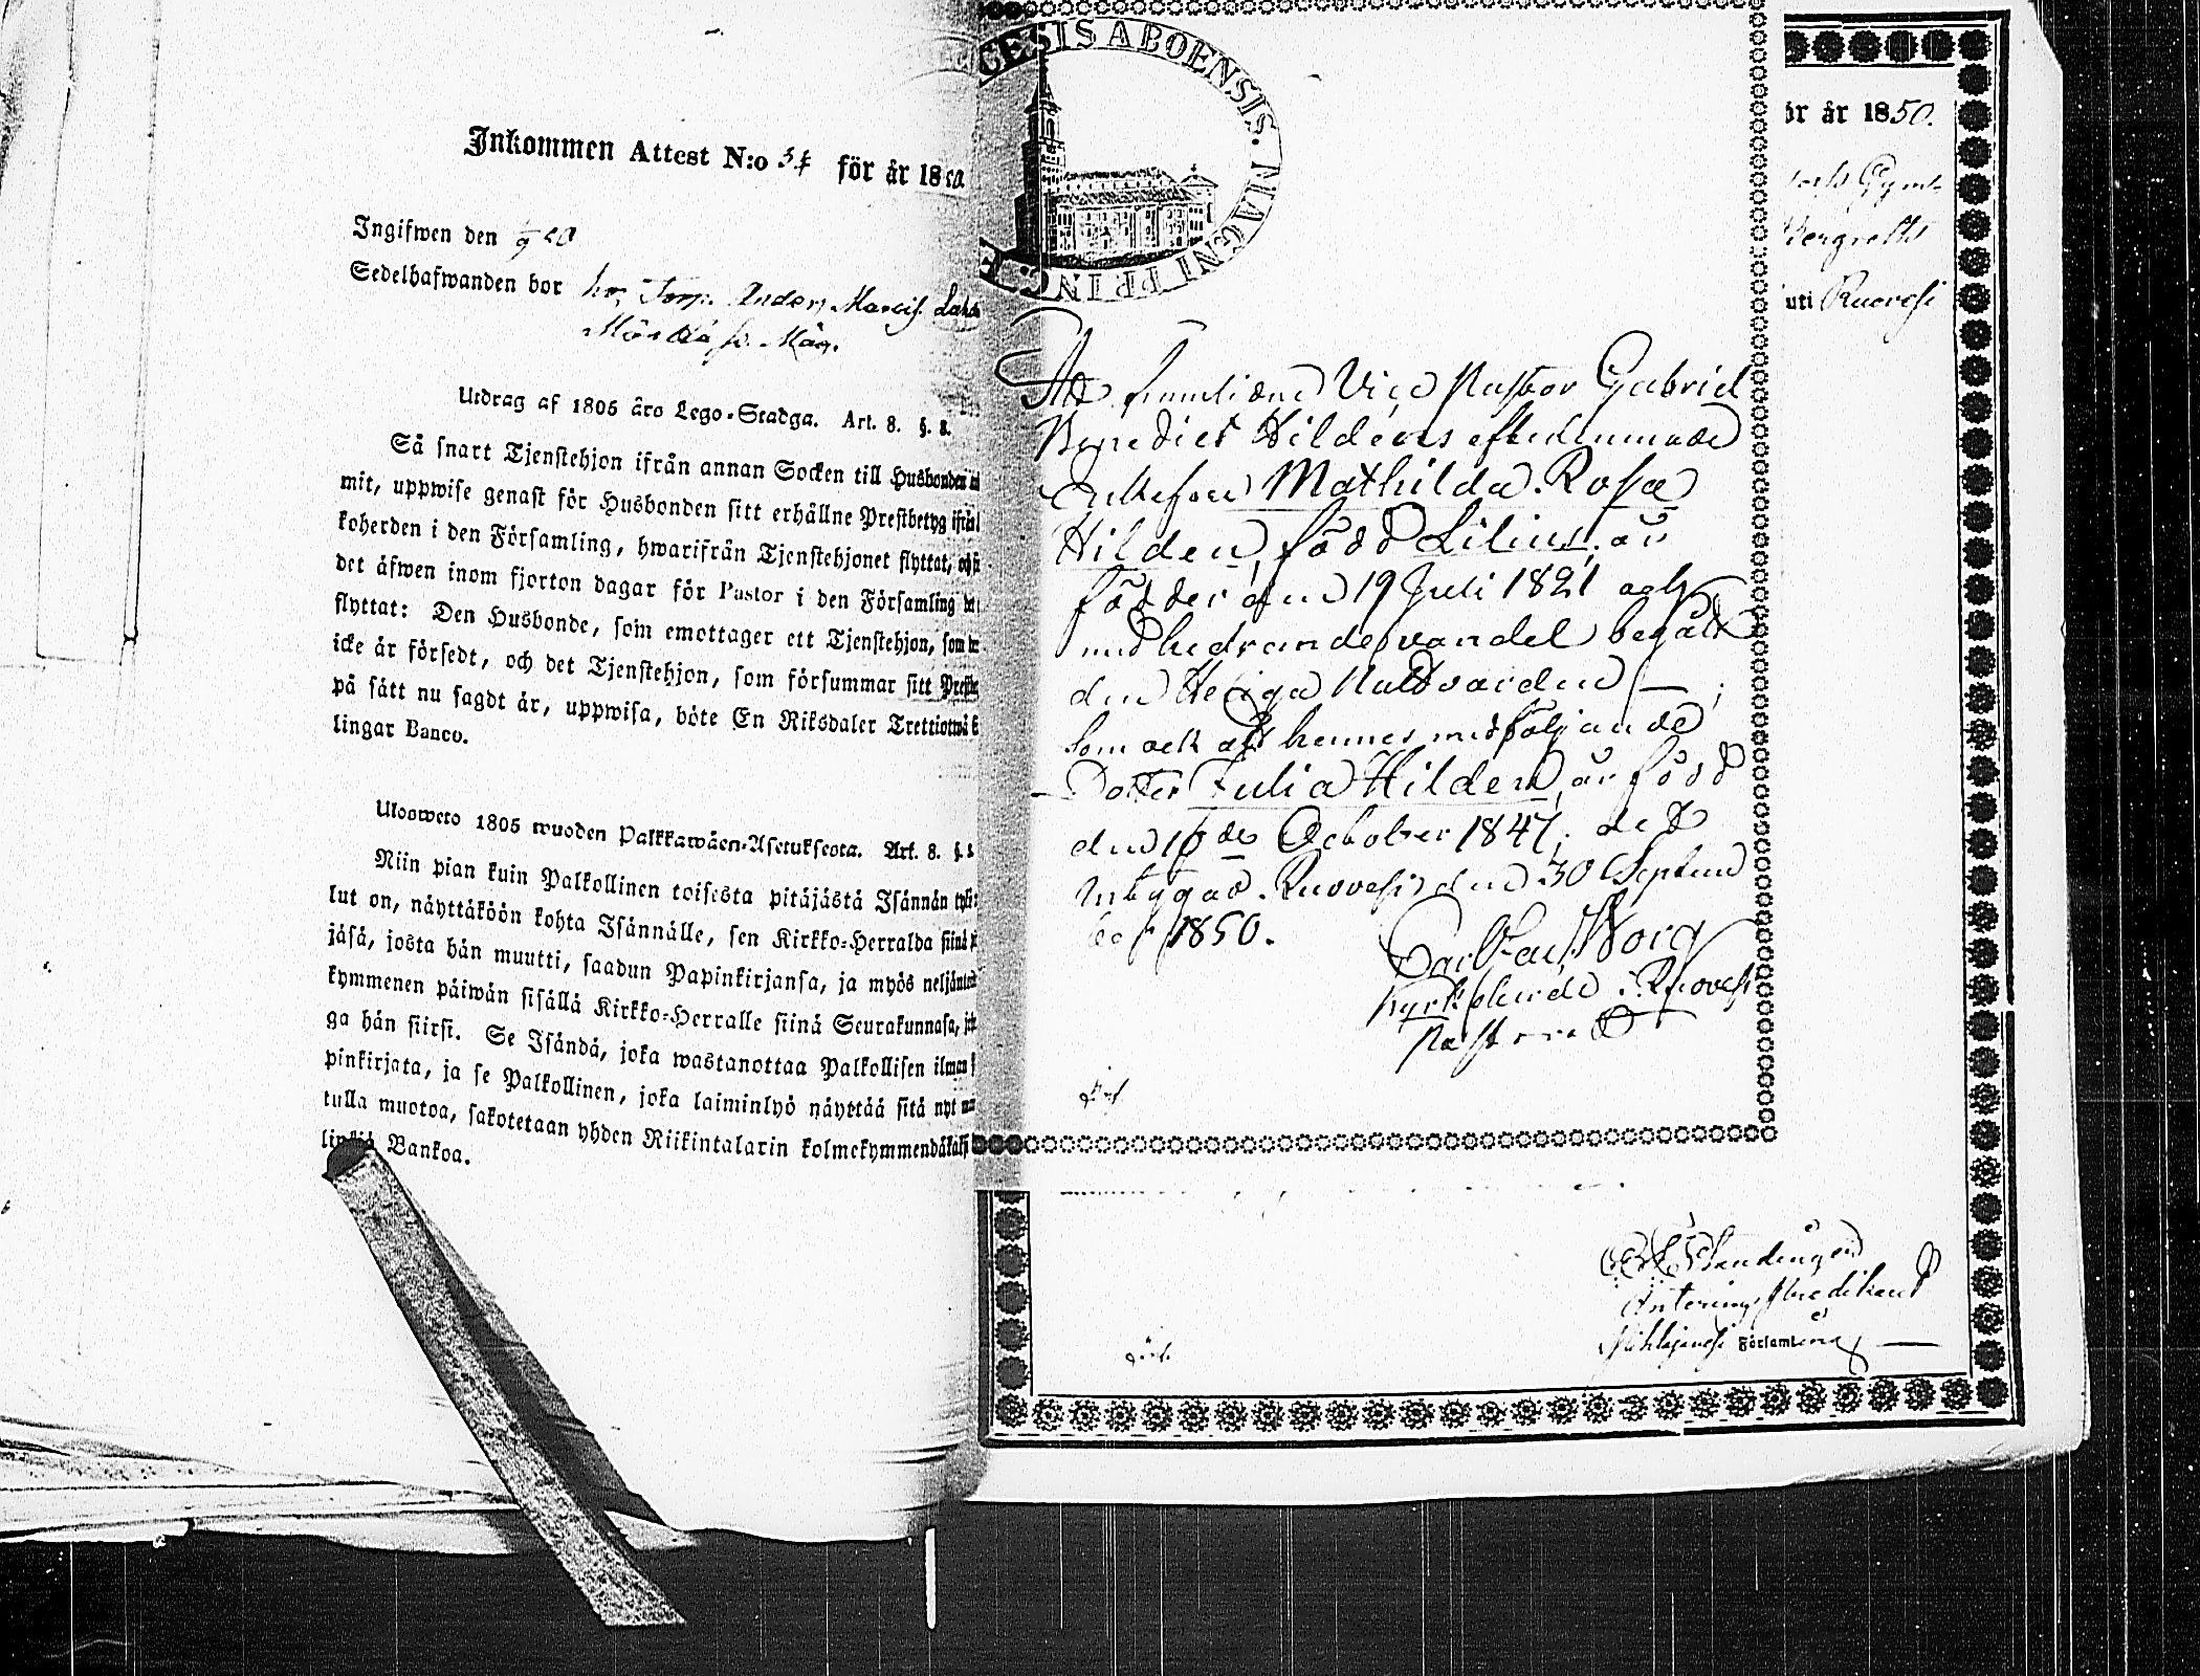 Inkommen Attest N:o 34 för år 1850
Ingifwen den
Sedelhafwanden bor hos Torp. Anders
Utdrag af 1805 års Lego-Stadga. Art. 8. §. 8.
Så snart Tjenstehjon ifrån annan Socken till Husbonden
mit, uppwise genast för Husbonden sitt erhållne Prestbetyg ifrån
koherden i den Församling, hwarifrån Tjenstehjonet flyttat, och
det äfwen inom fjorton dagar för Pastor i den Församling
flyttat: Den Husbonde, som emottager ett Tjenstehjon, som
icke är försedt, och det Tjenstehjon, som försummar sitt Preste
på sätt nu sagdt är, uppwisa, böte En Riksdaler Trettiotwå
lingar Banco.
Ulosweto 1805 wuoden Palkkawäen-Asetuksesta. Art. 8. §. 8
Niin pian kuin Palkollinen toisesta pitäjästä Isännän tykö
lut on, näyttäköön kohta Isännälle, sen Kirkko-Herralda siinä
jäsä, josta hän muutti, saadun Papinkirjansa, ja myös neljän
kymmenen päiwän sisällä Kirkko-Herralle siinä Seurakunnasa,
ga hän siirsi. Se Isändä, joka wastanottaa Palkollisen ilman
pinkirjata, ja se Palkollinen, joka laiminlyö näyttää sitä nyt
tulla muotoa, sakotetaan yhden Riikintalarin kolmekymmendäkaksi
Bankoa.
CESIS ABOENSIS. MAGNI PRINC:
Att framlidne Vice Pastor Gabriel
Benedict Hildens efterlemnade
Enkefru Mathilda Rosa
Hilden, född Lilius, är
född den 19 Juli 1821 och
med hedrande vandel begått
den Heliga Nattvarden ;
som ock att hennes medföljande
Dotter Julia Hilden, är född
den 16de October 1847; det
intygas. Ruovesi den 30 Septem
ber 1850.
Kyrkoherde i Ruovesi
Pastorat
ör år 1850.
uti Ruovesi
Predikant
Församling